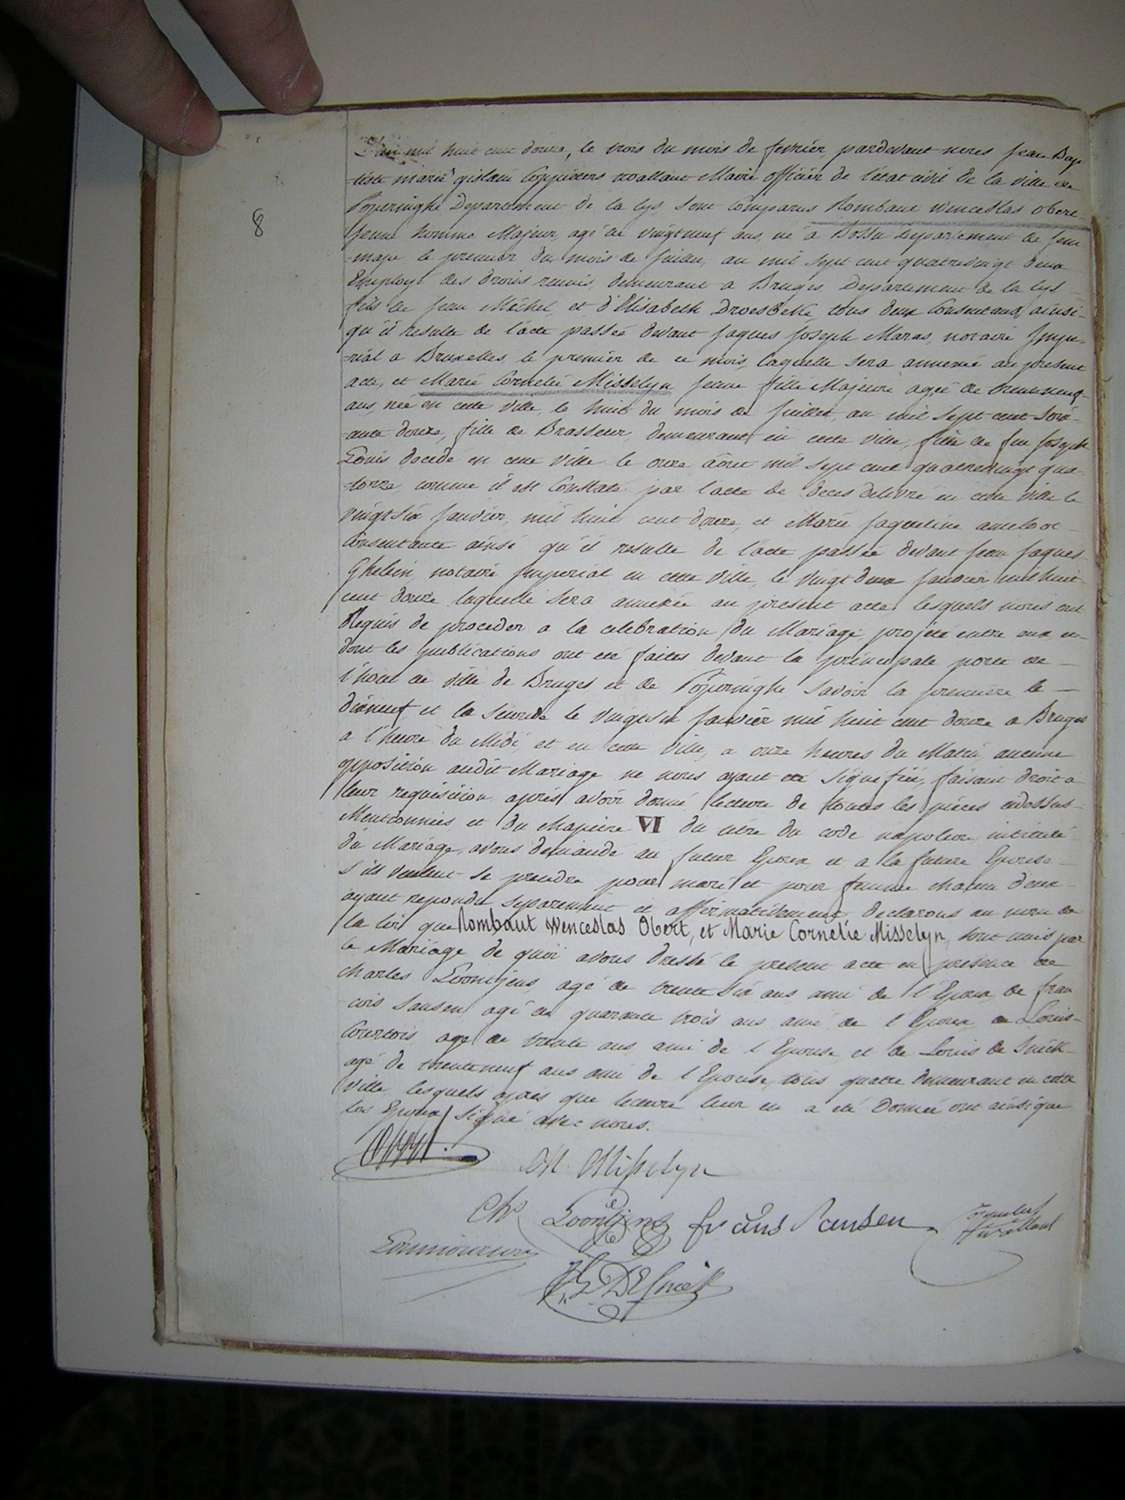 8
L'an mil huit cent douze, le trois du mois de fevrier pardevant nous Jean Bap
tiste marie gislain wallaert Maire officier de l'etat civil de la ville de
Poperinghe Departement de la Lys sont comparus Rombaut Wenceslas Obert
jeune homme Majeur, agé de vingtneuf ans, né à departement de Jem
mape le premier du mois de Juillet, an mil sept cent quatrevingt deux
Employé des droits reunis, demeurant a Bruges Departement de la Lys
fils de Jean Michel, et d'Elisabeth Droesbeke tous deux Consentans, ainsi
qu'il resulte de l'acte passée devant Jaques Joseph Maras, notaire Impe
rial a Bruxelles le premier de ce mois, laquelle sera annexée au present
acte, et Marie Cornelie Misselyn jeune fille Majeure agée de trenteneuf
ans née en cette ville, le huit du mois de Juillet, an mil sept cent soix
ante douze, fille de Brasseur, demeurant en cette ville, fille de feu Joseph
Louis decede en cette ville le onze août mil sept cent quatrevingt qua
torze comme il est Constaté par l'acte de deces delivré en cette ville le
vingt six Janvier, mil huit cent douze, et Marie Jaqueline
Consentante ainsi qu'il resulte de l'acte passée devant Jean Jaques
Ghelein notaire Imperial en cette ville, le vingt deux Janvier mil huit
cent douze laquelle sera annexée au present acte, lesquels nous ont
Requis de proceder a la celebration du Mariage projété entre eux et
dont les publications ont été faites devant la principale porte de
l'hotel de ville de Bruges et de Poperinghe savoir la premiere le
dixneuf et la seconde le vingt six Janvier mil huit cent douze a Bruges
a l'heure du Midi, et en cette ville, a onze heures du Matin aucune
opposition audit Mariage ne nous ayant été signifiée, faisant droit a
leur requisition après avoir donné lecture de toutes les pièces
Mentionnées et du chapitre VI du titre du code napoleon intitulé
du Mariage, avons demandé au futur Epoux et a la future Epouse
s'ils veulent se prendre pour mari et pour femme chacun d'eux
ayant repondu separement et affirmativement, declarons au nom de
la loi que Rombaut Wenceslas Obert, et Marie Cornelie Misselyn, sont unis par
le Mariage de quoi avons dressé le present acte en presence de
charles Loontjens agé de trente six ans ami de l'Epoux, de fran
cois Sansen agé de quarante trois ans ami de l'Epoux de Louis
Courtois agé de trente ans ami de l'Epouse, et de Louis de Snick
agé de trenteneuf ans ami de l'Epouse, tous quatre demeurant en cette
ville lesquels après que lecture leur en a été Donnée ont ainsi que
les Epoux signé avec nous.
M Misselyn
Chs Loontjens frans Sansen
DeSnick